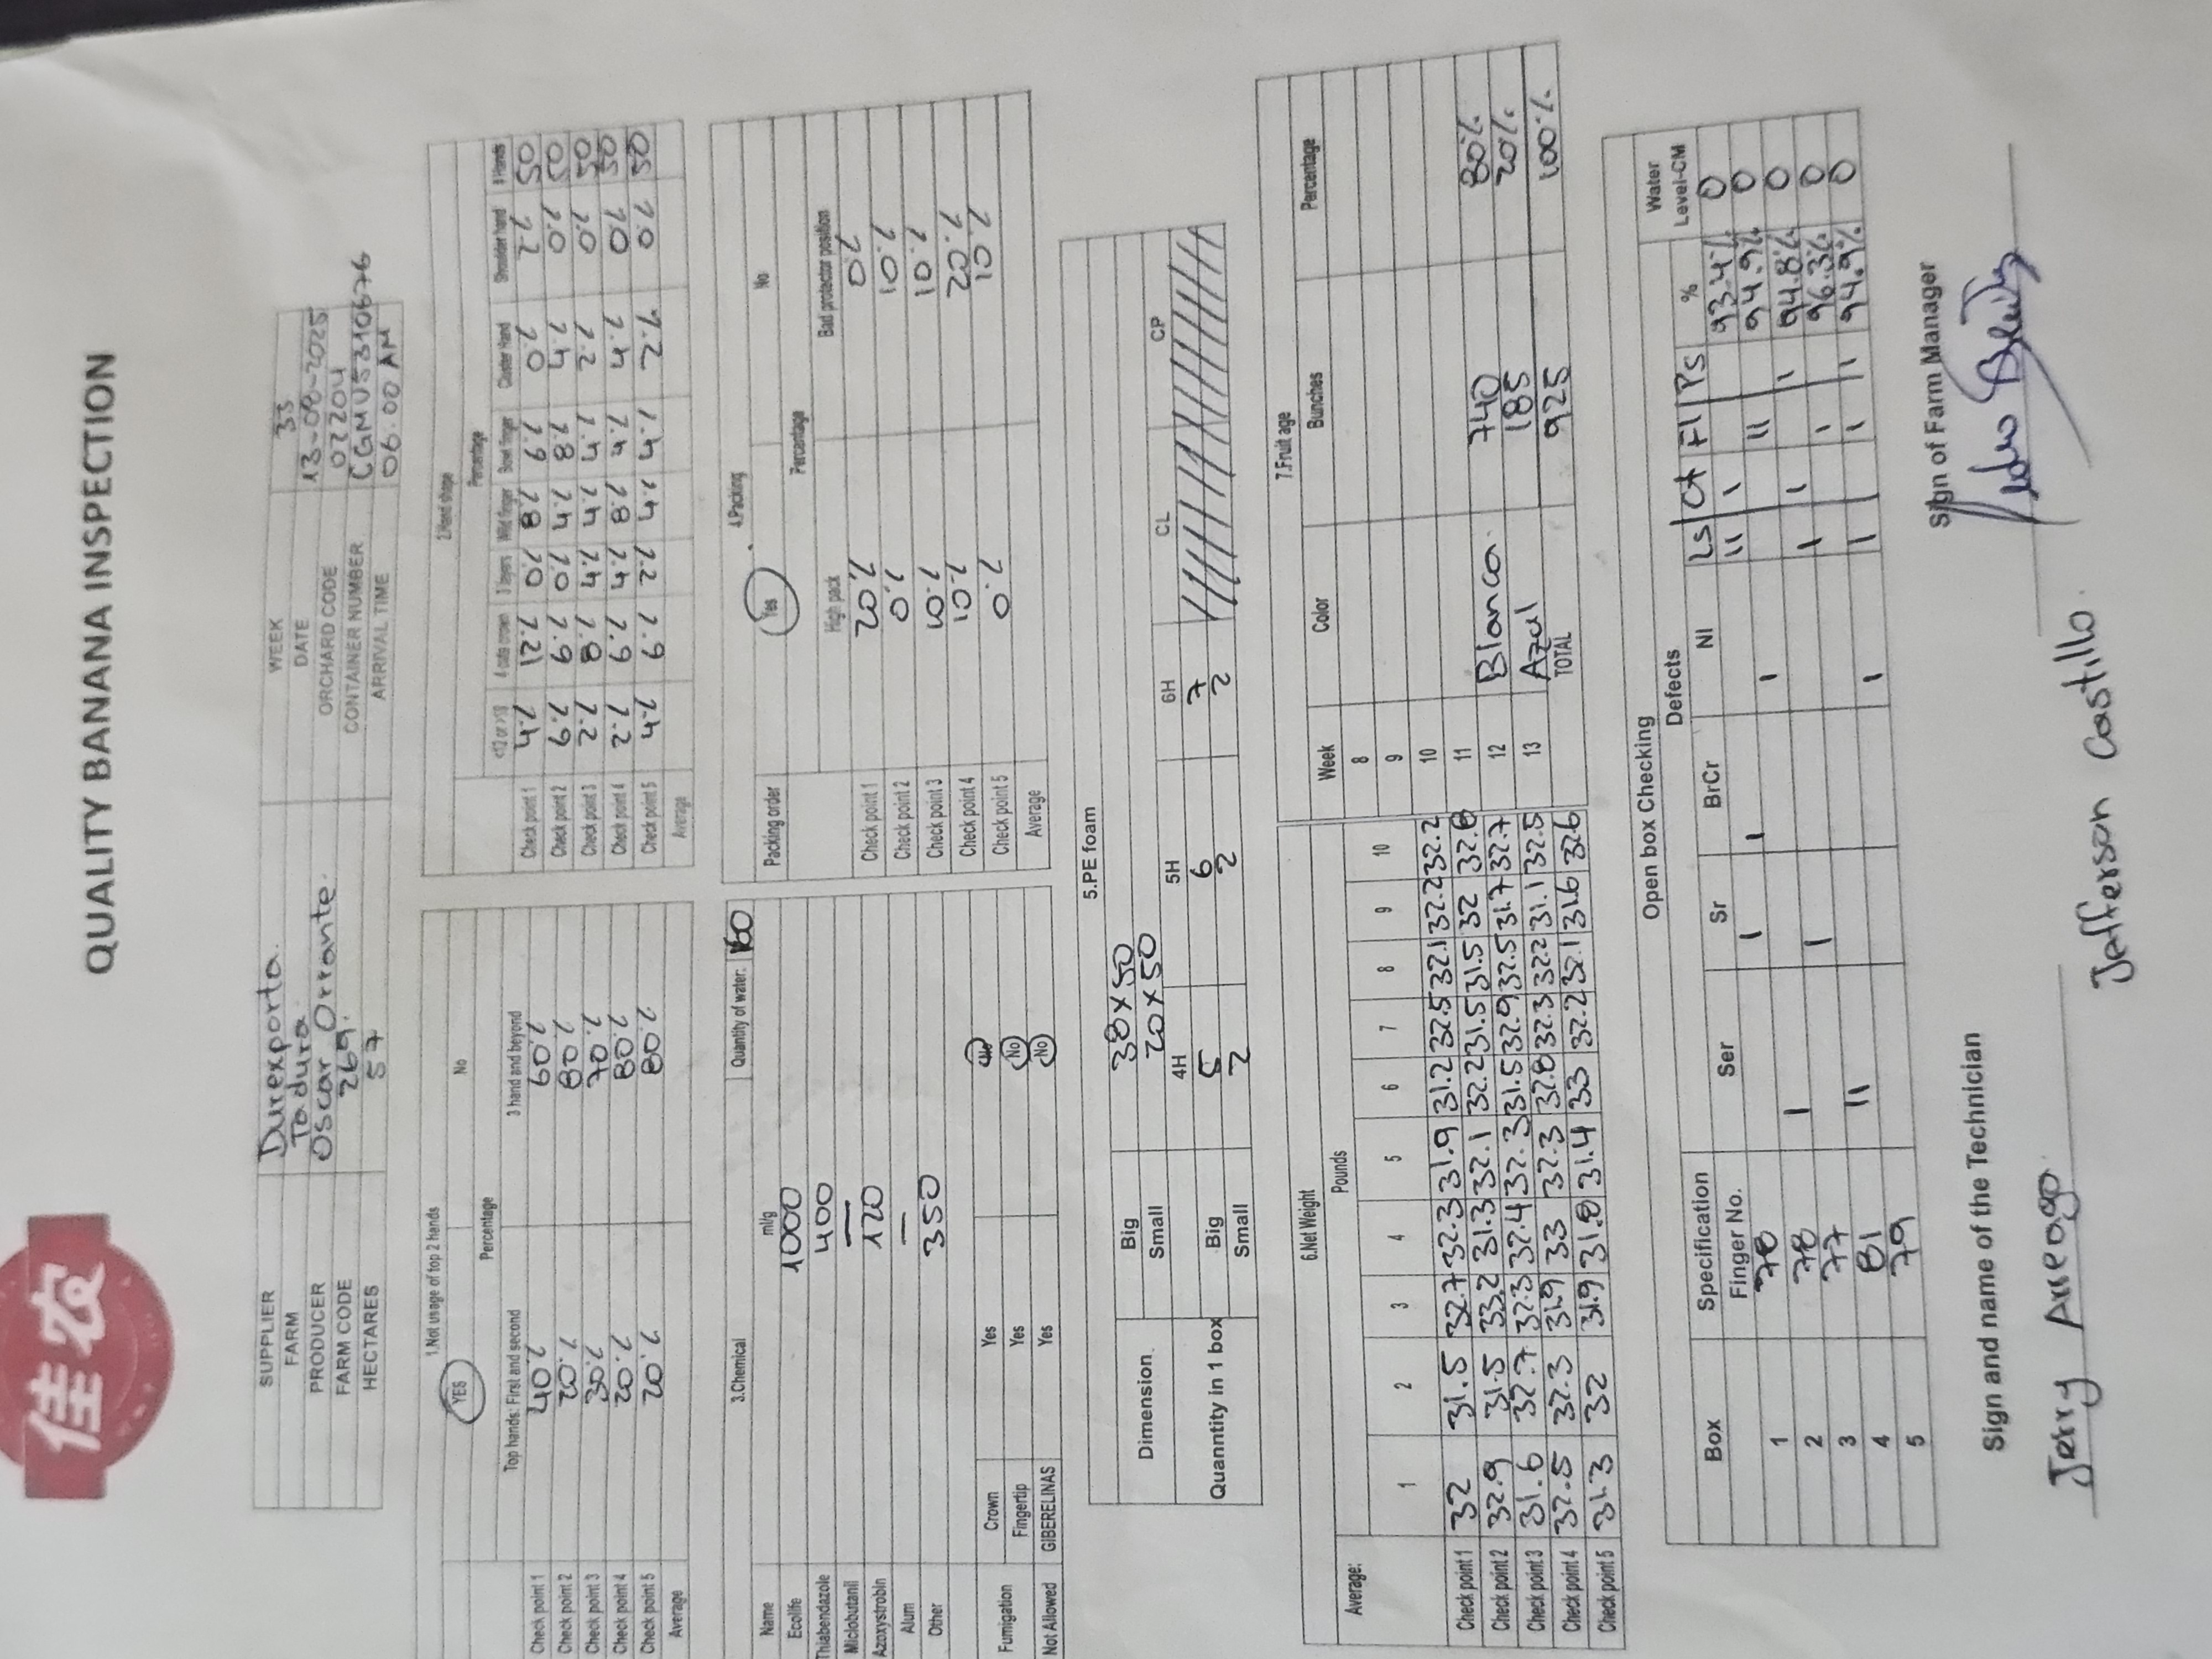 佳农
QUALITY BANANA INSPECTION
SUPPLIER Durexporta. WEEK 33
FARM Tadura DATE 13-08-2025
PRODUCER Oscar Orrante. ORCHARD CODE 02204
FARM CODE 269. CONTAINER NUMBER CGMU5310676
HECTARES 57 ARRIVAL TIME 06.00 AM
1.Not usage of top 2 hands
YES No
Percentage
Top hands: First and second 3 hand and beyond
Check point 1 40% 60%
Check point 2 20% 80%
Check point 3 30% 70%
Check point 4 20% 80%
Check point 5 20% 80%
Average
2.Hand shape
Percentage
4 cuts crown 3 layers Wild finger Bowl finger Cluster Hand Shoulder hand # Hands
Check point 1 4% 12% 0% 8% 6% 0% 2% 50
Check point 2 6% 6% 0% 4% 8% 4% 0% 50
Check point 3 2% 8% 4% 4% 4% 2% 0% 50
Check point 4 2% 6% 4% 8% 4% 4% 0% 50
Check point 5 4% 6% 2% 4% 4% 2% 0% 50
Average
3.Chemical Quantity of water: 160
Name ml/g
Ecolife 1000
Thiabendazole 400
Miclobutanil —
Azoxystrobin 120
Alum —
Other 350
Fumigation Crown Yes No
Fingertip Yes No
Not Allowed GIBERELINAS Yes No
4.Packing
Packing order Yes No
Percentage
High pack Bad protector position
Check point 1 20% 0%
Check point 2 0% 10%
Check point 3 10% 10%
Check point 4 10% 20%
Check point 5 0% 10%
Average
5.PE foam
Dimension Big 38x50
Small 20x50
4H 5H 6H CL CP
Quanntity in 1 box Big 5 6 7
Small 2 2 2
6.Net Weight
Average: Pounds
1 2 3 4 5 6 7 8 9 10
Check point 1 32 31.5 32.7 32.3 31.9 31.2 32.5 32.1 32.2 32.2
Check point 2 32.9 31.5 33.2 31.3 32.1 32.2 31.5 31.5 32 32.8
Check point 3 31.6 32.7 32.3 32.4 32.3 31.5 32.9 32.5 31.7 32.7
Check point 4 32.5 32.3 31.9 33 32.3 32.8 32.3 32.2 31.1 32.5
Check point 5 31.3 32 31.9 31.8 31.4 33 32.2 32.1 31.6 32.6
7.Fruit age
Week Color Bunches Percentage
8
9
10
11
12 Blanca. 740 80%
13 Azul 185 20%
TOTAL 925 100%
Open box Checking
Defects Water
Box Specification Ser Sr BrCr NI Ls Ct Fl Ps % Level-CM
Finger No.
1 78 I I II I 93.4% 0
2 78 I I II 94.9% 0
3 77 I I I I 94.8% 0
4 81 II I 96.3% 0
5 79 I I I I 94.9% 0
Sign and name of the Technician Sign of Farm Manager
Jerry Arreaga
Jefferson Castillo.